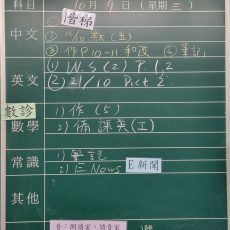 科目 10月9日(星期三)
中文 ① 階梯
② 15/10 默(五)
③ 作P.10-11和改 ④ 筆記
英文 ① W.S(2) P.1,2
② 21/10 Dict 2
數診
數學 1) 作(5)
2) 備課英(I)
常識 1) 筆記
2) E News E新聞
其他